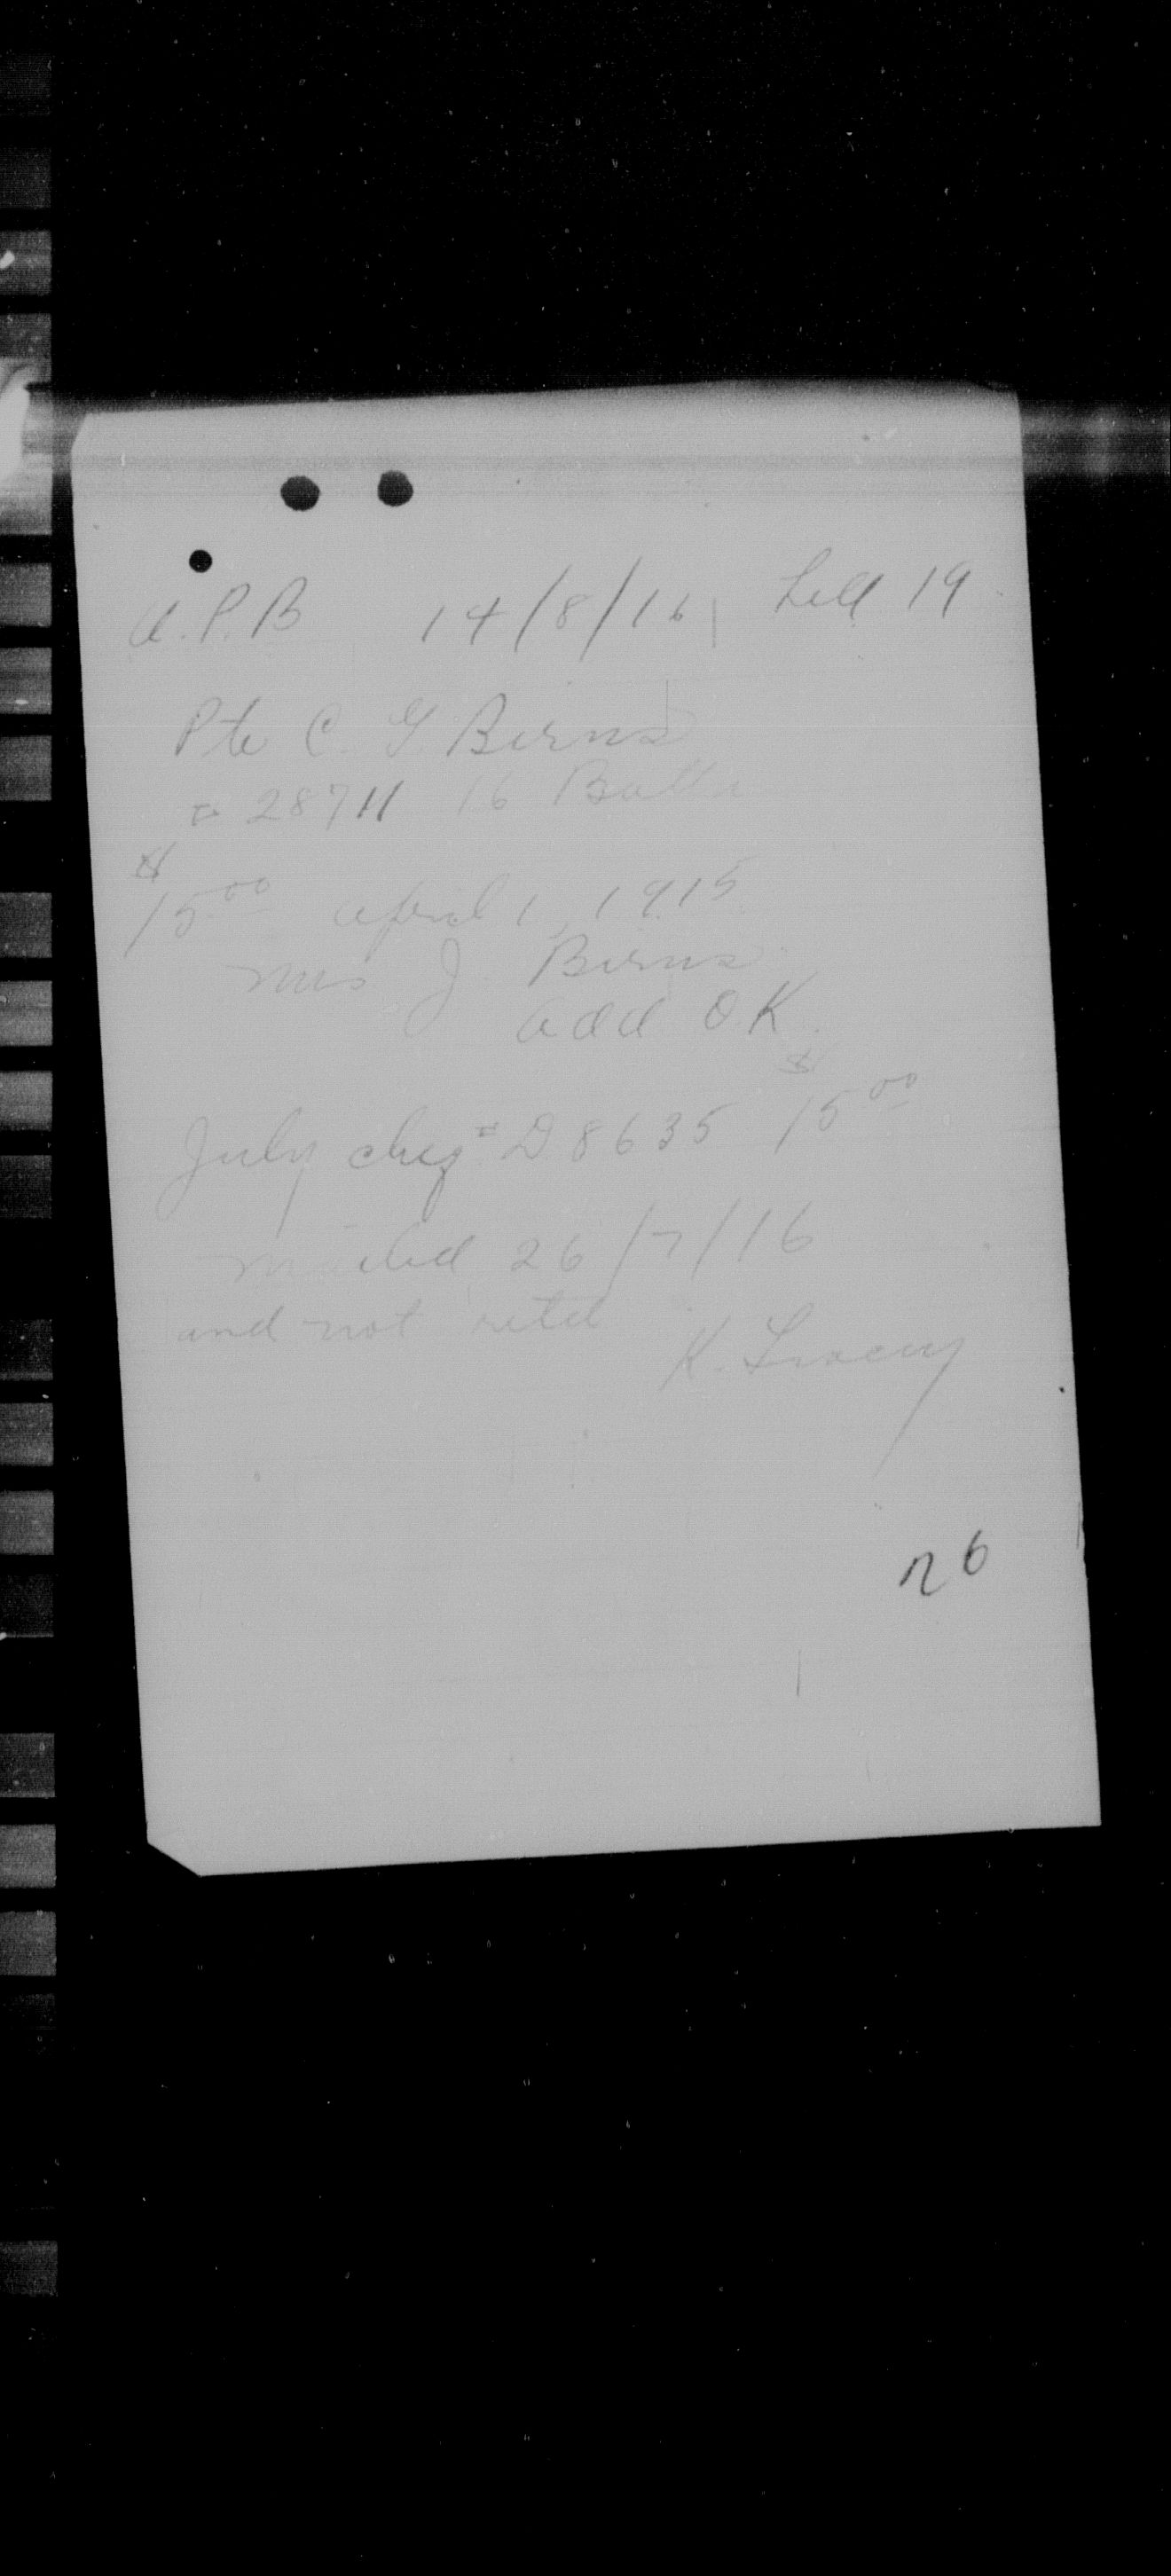 A.P.B 14/8/16 19
Pte C. G Birns
# 28711 16 Battn
$15.00 April 1, 1915
Mrs J. Birns
add OK.
July cheq # D 8635 $15.00
mailed 26/7/16
and not retd
K. Tracey
26